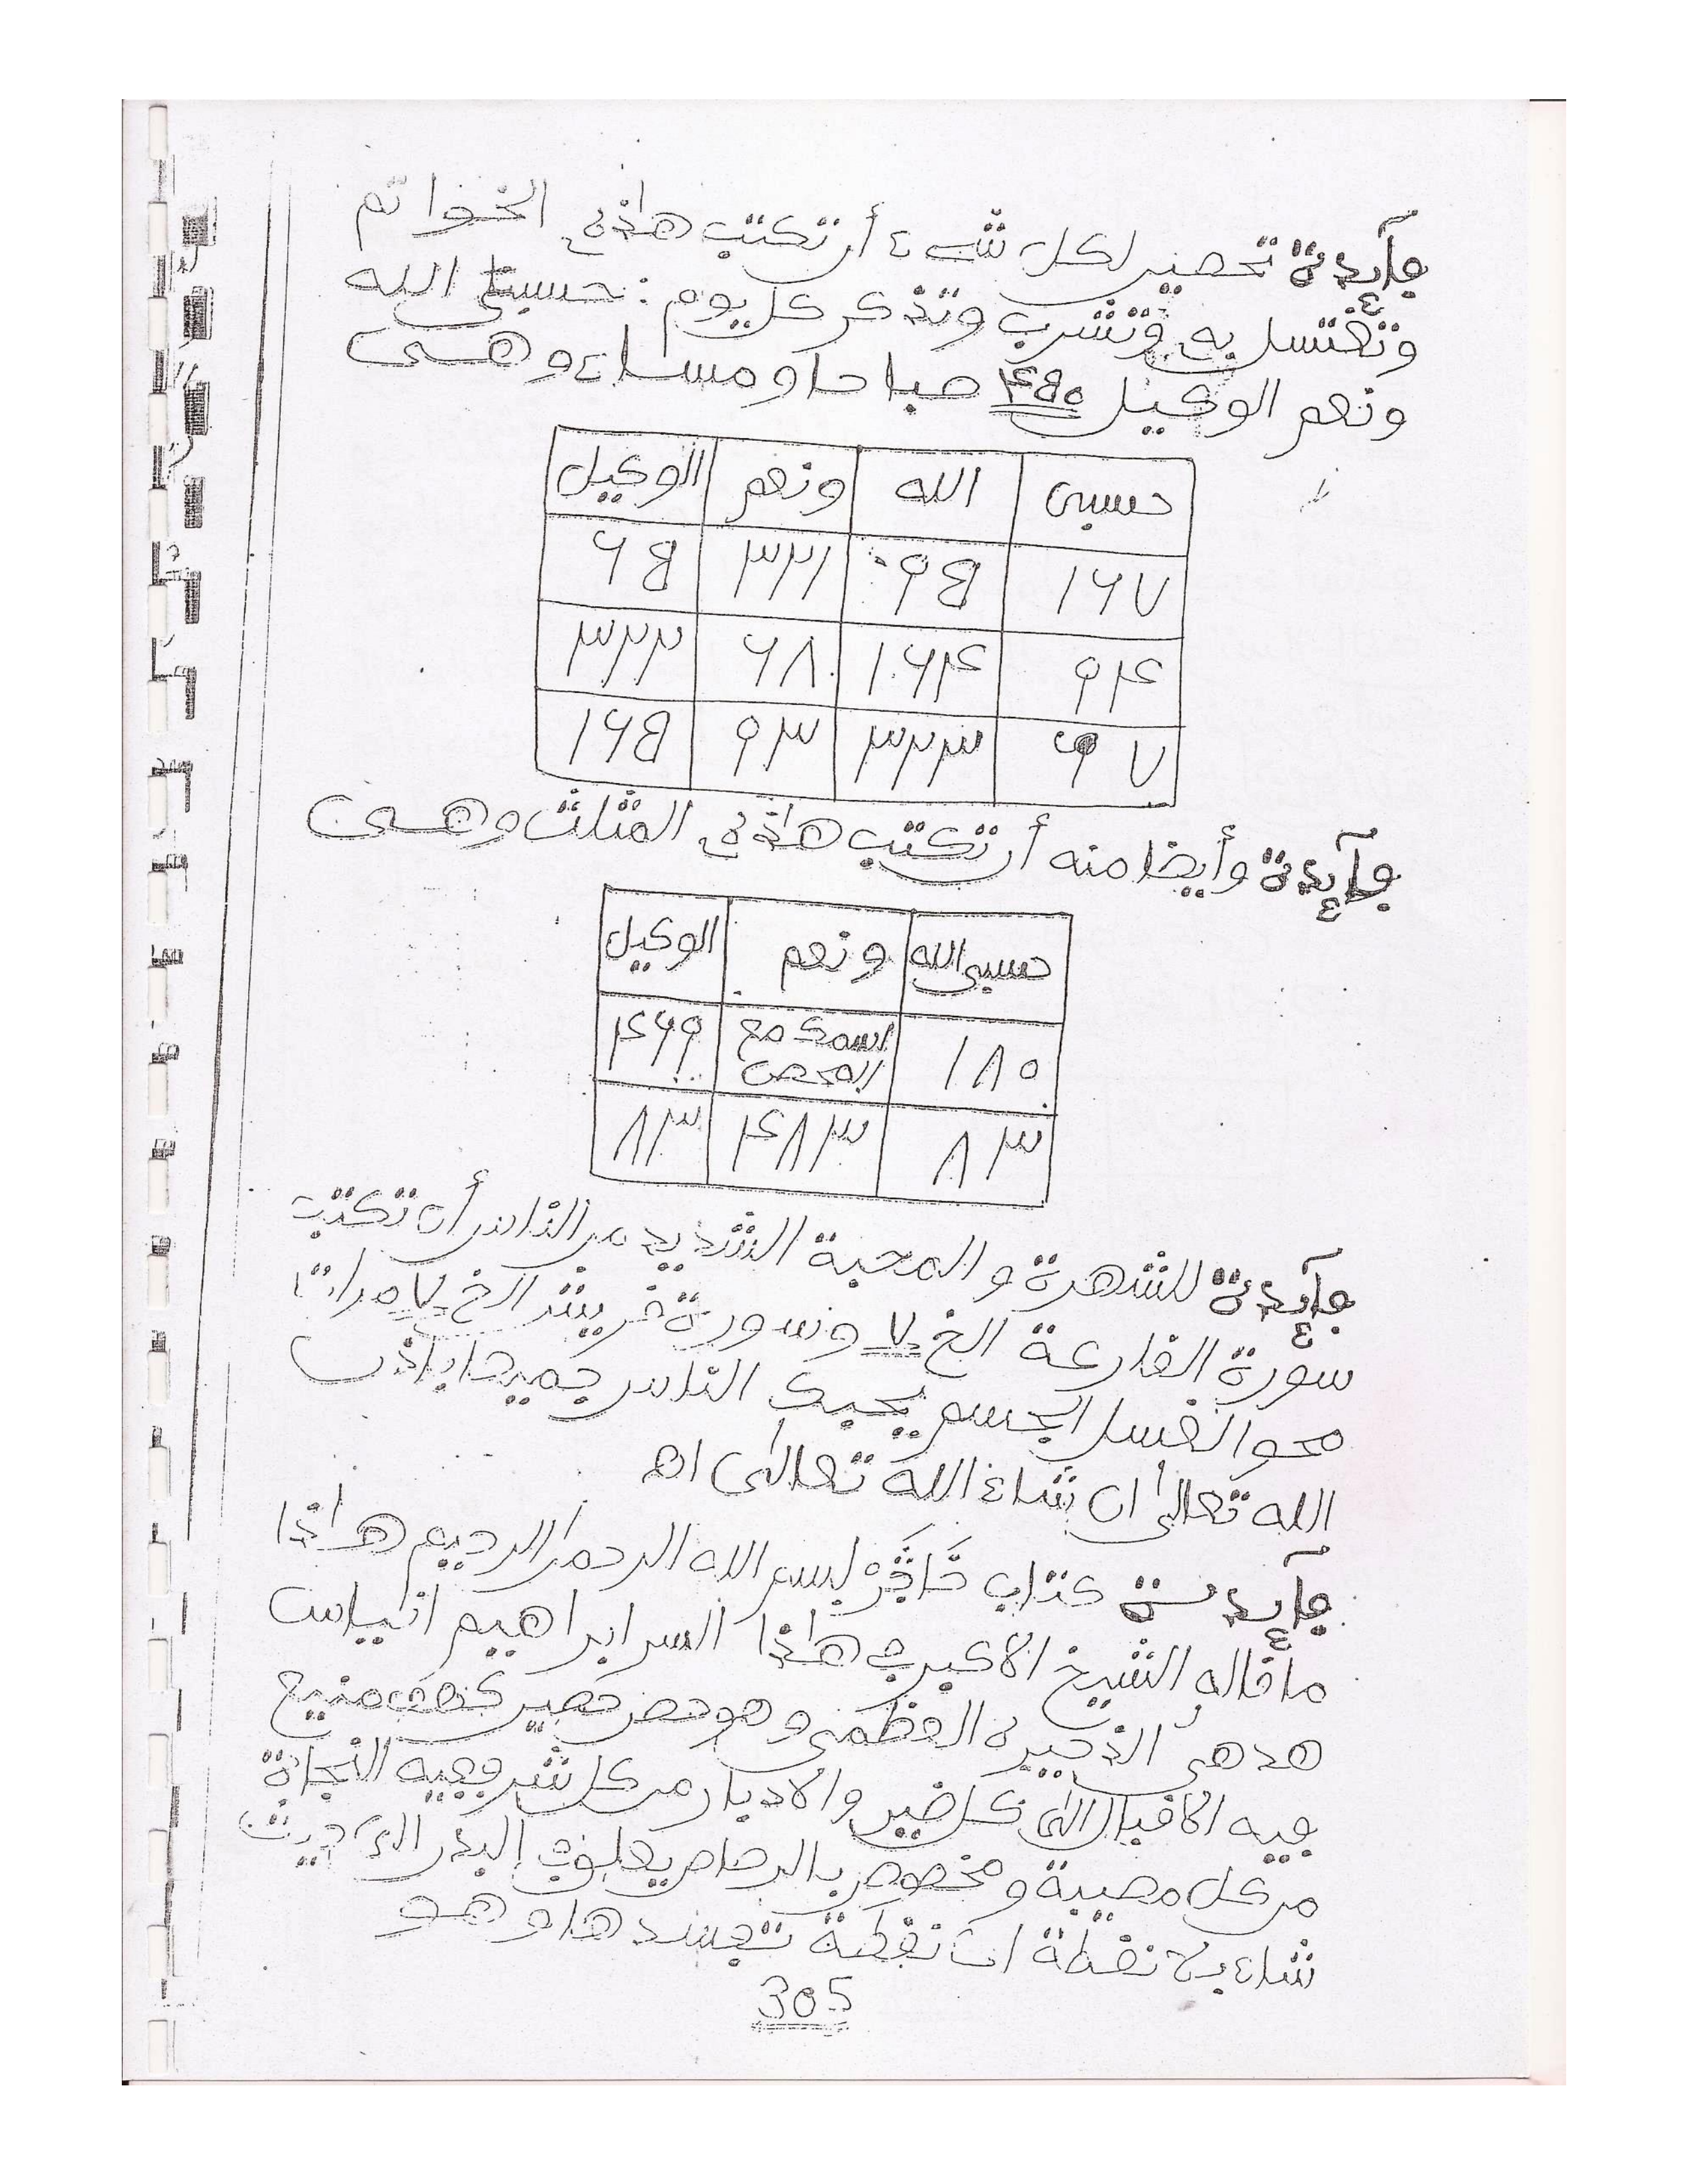 فآيدة تحصين لكل شيء أن تكتب هاذه الخواتم
وتغتسل به وتشرب وتذكر كل يوم: حسبي الله
ونعم الوكيل ۴۵۰ صباحا ومساء وهى
حسبى الله ونعم الوكيل
۱۶۷ ۹۵ ۳۲۱ ۶۵
۹۴ ۱۶۴ ۶۸ ۳۲۲
۷ ۳۲۳ ۹۳ ۱۶۵
فآيدة وأيضا منه أن تكتب هاذه المثلث وهى
حسبى الله ونعم الوكيل
۱۸۰ اسمك مع ۴۶۹
۸۳ ۴۸۳ ۸۳
فآيدة للشهرة والمحبة الشديد من الناس أن تكتب
سورة القارعة الخ ۷ وسورة قريش الخ ۷ مرات
محو الغسل الجسم يحبك الناس جميعا باذن
الله تعالى ان شاء الله تعالى اهـ
فآيدة كتاب بسم الله الرحمن الرحيم هاذا
ما قاله الشيخ الأكبر في هاذا السر ابراهيم انياس
هذهى الذخيرة العظمى وهو حصن حصين كهف منيع
فيه الاقبال الى كل خير والادبار من كل شر وفيه النجاة
من كل مصيبة ومخصوص بالرصاص يعلوف البدر الى حيث
شاء بلا نقطة ان نقطة تفسدها وهو
305